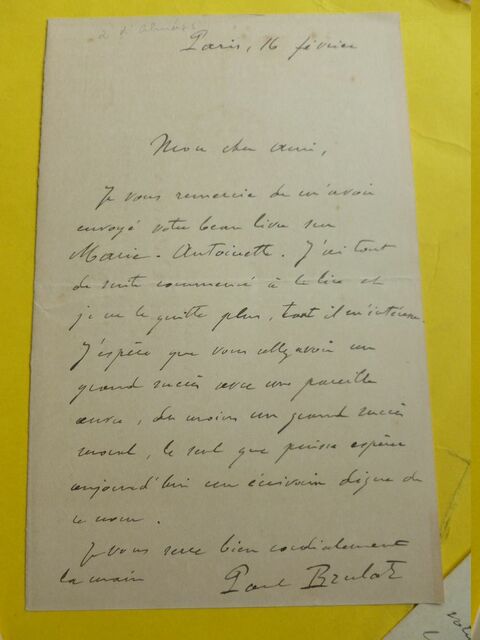 à d'Alméras
Paris, 16 février
Mon cher ami,
Je vous remercie de m'avoir
envoyé votre beau livre sur
Marie-Antoinette. J'ai tout
de suite commencé à le lire et
je ne le quitte plus, tant il m'intéresse.
J'espère que vous allez avoir un
grand succès avec une pareille
œuvre, du moins un grand succès
moral, le seul que puisse espérer
aujourd'hui un écrivain digne de
ce nom.
Je vous serre bien cordialement
la main Paul Brulat